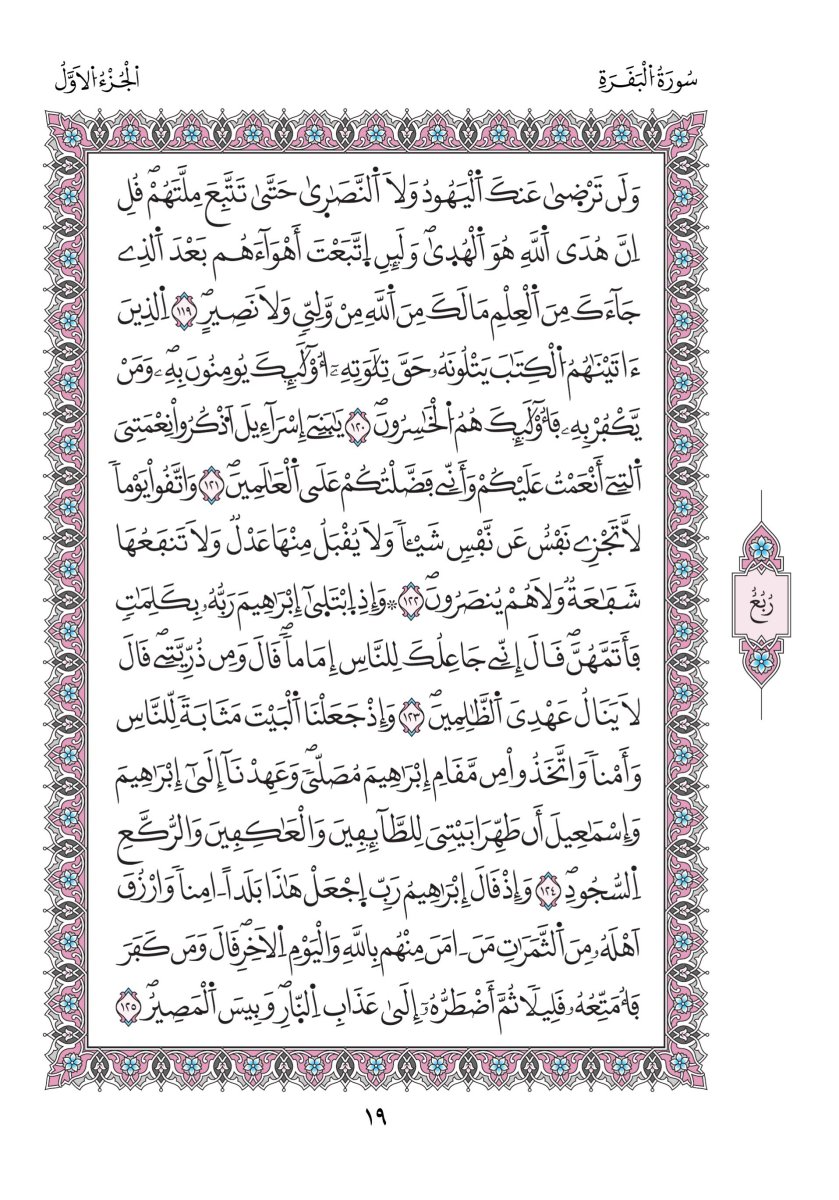 سُورَةُ اُ۬لْبَقَرَةِ
اَ۬لْجُزْءُ اُ۬لَاوَّلُ
وَلَن تَرْض۪ىٰ عَنكَ اَ۬لْيَهُودُ وَلَا اَ۬لنَّصَٰر۪ىٰ حَتَّىٰ تَتَّبِعَ مِلَّتَهُمْۖ قُلِ
اِنَّ هُدَى اَ۬للَّهِ هُوَ اَ۬لْهُد۪ىٰۖ وَلَئِنِ اِ۪تَّبَعْتَ أَهْوَآءَهُم بَعْدَ اَ۬لذِے
جَآءَكَ مِنَ اَ۬لْعِلْمِ مَا لَكَ مِنَ اَ۬للَّهِ مِنْ وَّلِيّٖ وَلَا نَصِيرٍۖ ١١٩ اِ۬لذِينَ
ءَاتَيْنَٰهُمُ اُ۬لْكِتَٰبَ يَتْلُونَهُۥ حَقَّ تِلَٰوَتِهِۦٓ أُوْلَٰٓئِكَ يُومِنُونَ بِهِۦۖ وَمَنْ
يَّكْفُرْ بِهِۦ فَأُوْلَٰٓئِكَ هُمُ اُ۬لْخَٰسِرُونَۖ ١٢٠ يَٰبَنِےٓ إِسْرَآءِيلَ اَ۟ذْكُرُواْ نِعْمَتِيَ
اَ۬لتِےٓ أَنْعَمْتُ عَلَيْكُمْ وَأَنِّے فَضَّلْتُكُمْ عَلَى اَ۬لْعَٰلَمِينَۖ ١٢١ وَاتَّقُواْ يَوْماٗ
لَّا تَجْزِے نَفْسٌ عَن نَّفْسٖ شَيْـٔاٗ وَلَا يُقْبَلُ مِنْهَا عَدْلٞ وَلَا تَنفَعُهَا
شَفَٰعَةٞ وَلَا هُمْ يُنصَرُونَۖ ١٢٢ ۞ وَإِذِ اِ۪بْتَل۪ىٰٓ إِبْرَٰهِيمَ رَبُّهُۥ بِكَلِمَٰتٖ
فَأَتَمَّهُنَّۖ قَالَ إِنِّے جَاعِلُكَ لِلنَّاسِ إِمَاماٗۖ قَالَ وَمِن ذُرِّيَّتِےۖ قَالَ
لَا يَنَالُ عَهْدِيَ اَ۬لظَّٰلِمِينَۖ ١٢٣ وَإِذْ جَعَلْنَا اَ۬لْبَيْتَ مَثَابَةٗ لِّلنَّاسِ
وَأَمْناٗ وَاتَّخَذُواْ مِن مَّقَامِ إِبْرَٰهِيمَ مُصَلّيٗۖ وَعَهِدْنَآ إِلَىٰٓ إِبْرَٰهِيمَ
وَإِسْمَٰعِيلَ أَن طَهِّرَا بَيْتِيَ لِلطَّآئِفِينَ وَالْعَٰكِفِينَ وَالرُّكَّعِ
اِ۬لسُّجُودِۖ ١٢٤ وَإِذْ قَالَ إِبْرَٰهِيمُ رَبِّ اِ۪جْعَلْ هَٰذَا بَلَداً اٰمِناٗ وَارْزُقَ
اَهْلَهُۥ مِنَ اَ۬لثَّمَرَٰتِ مَنَ اٰمَنَ مِنْهُم بِاللَّهِ وَالْيَوْمِ اِ۬لَاخِرِۖ قَالَ وَمَن كَفَرَ
فَأُمَتِّعُهُۥ قَلِيلٗا ثُمَّ أَضْطَرُّهُۥٓ إِلَىٰ عَذَابِ اِ۬لنّ۪ارِۖ وَبِيسَ اَ۬لْمَصِيرُۖ ١٢٥
رُبُعُ
١٩